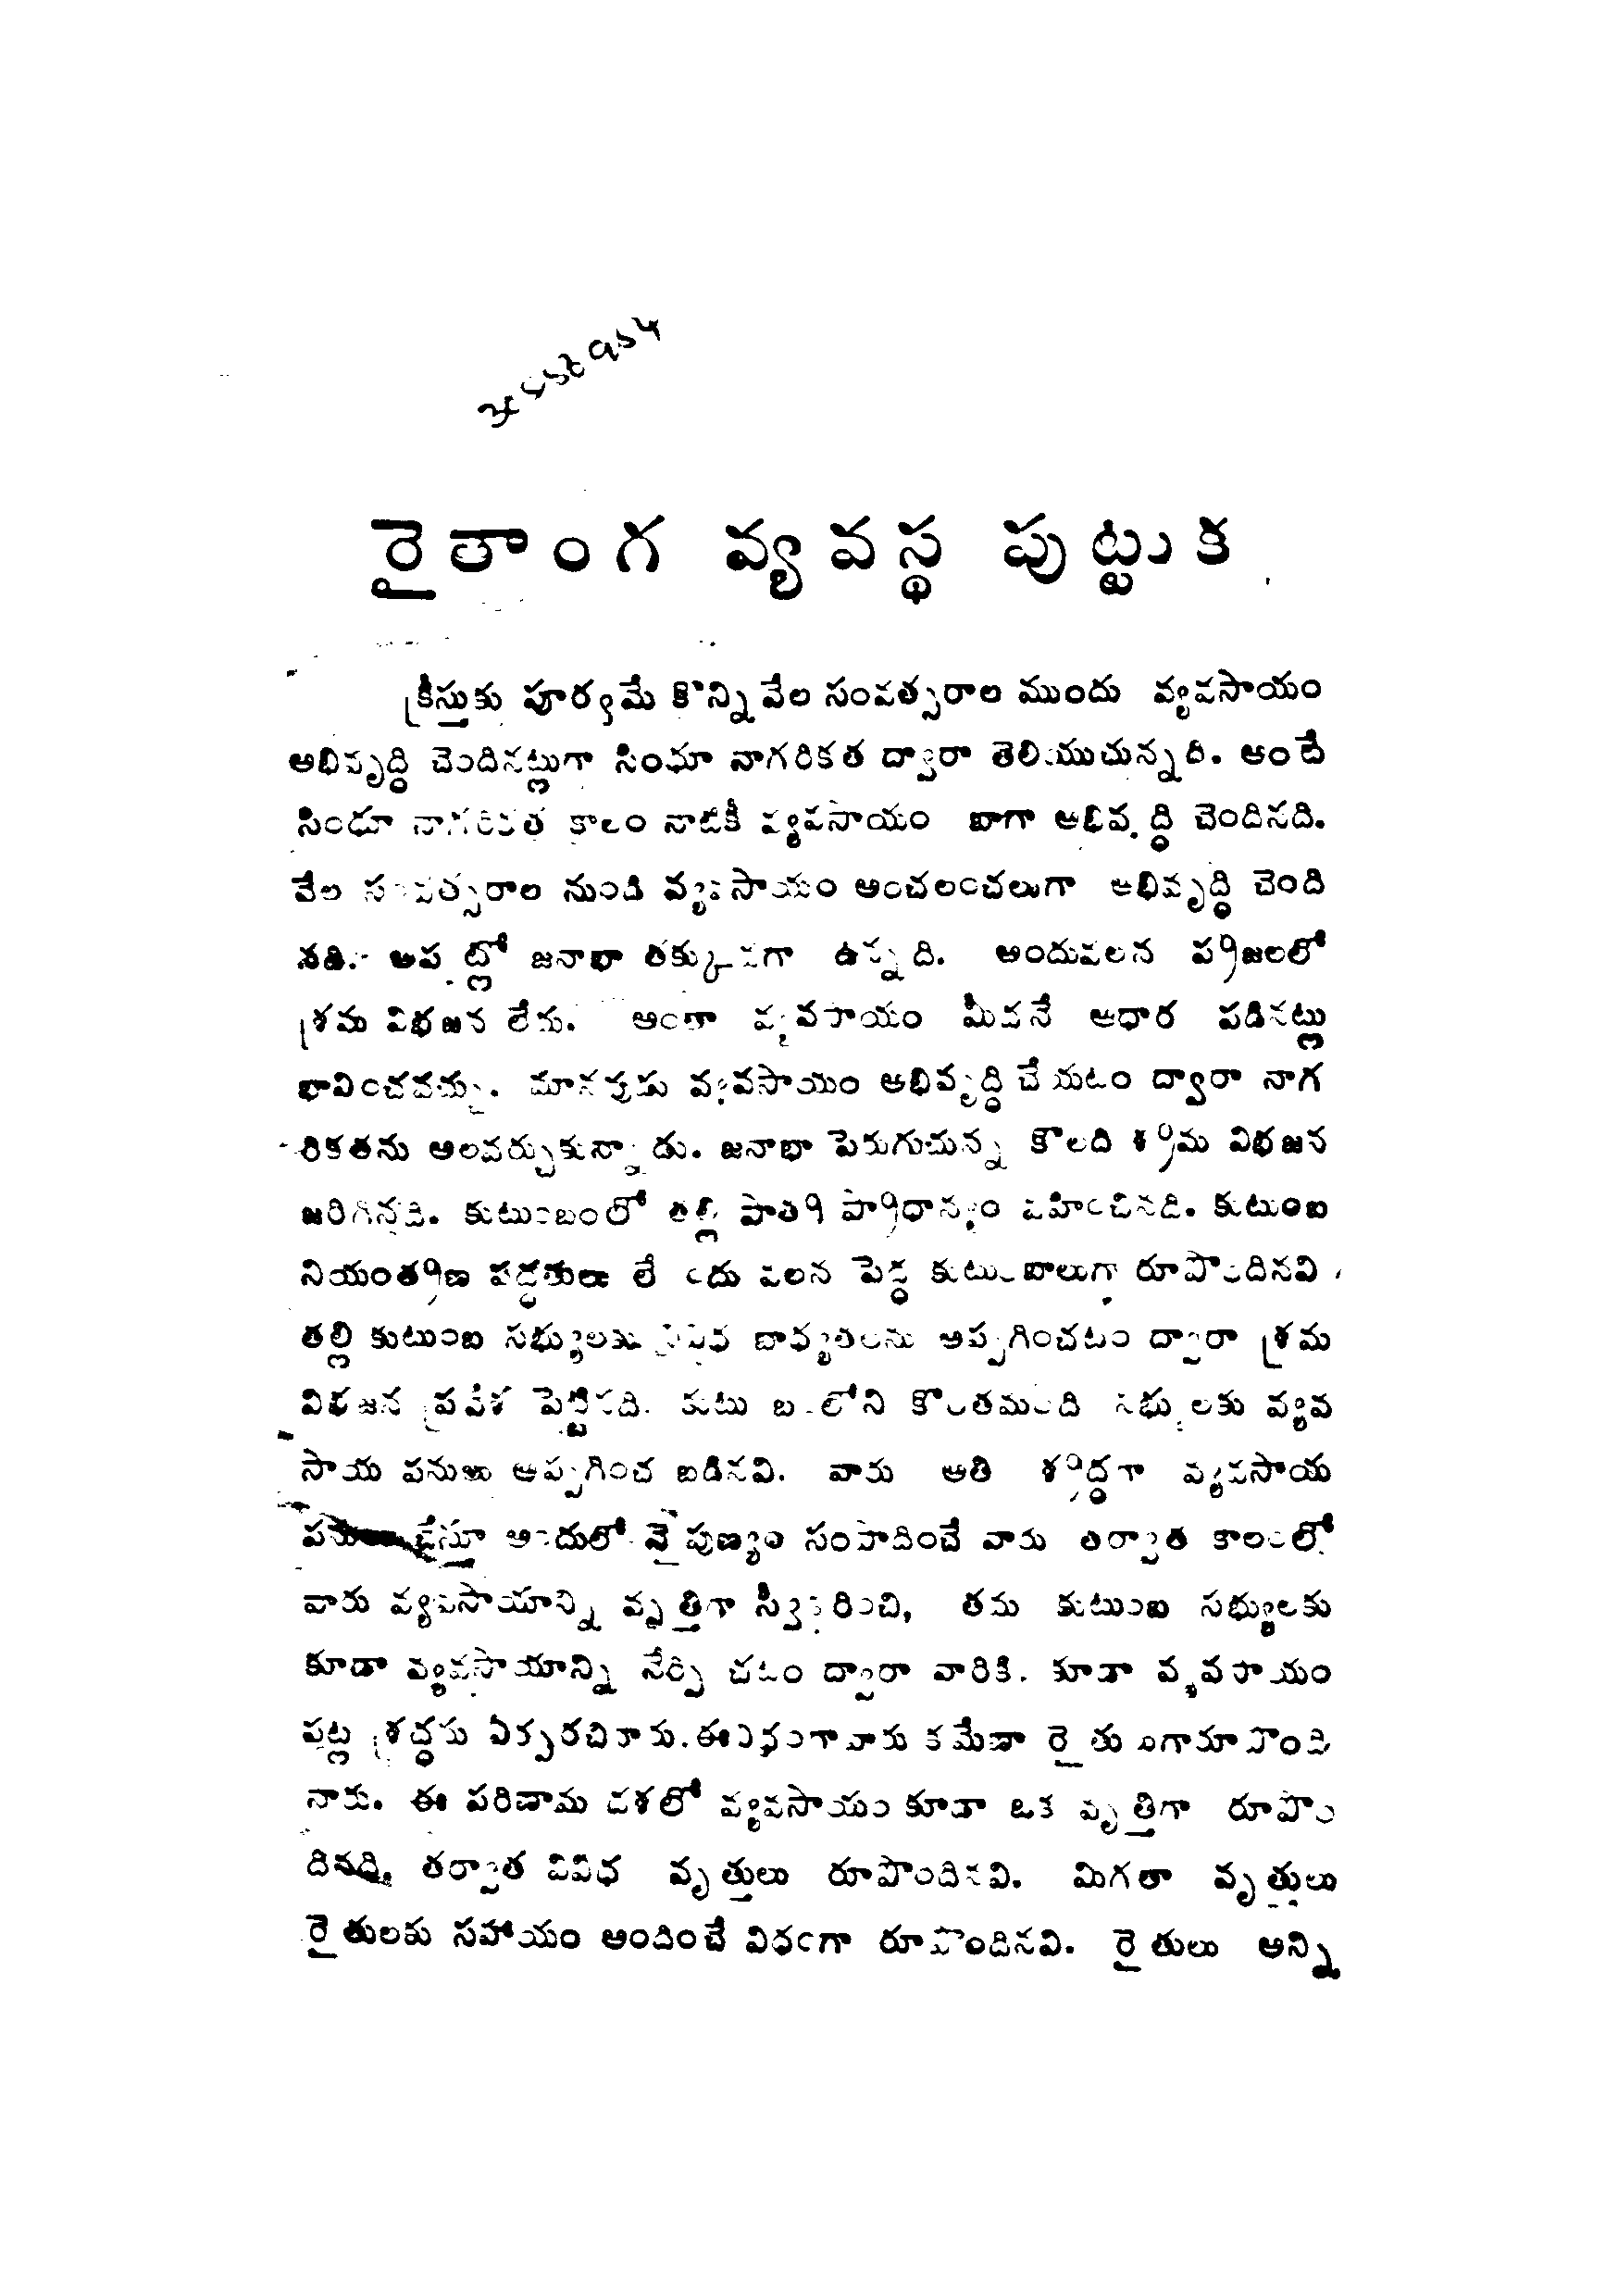 రైతాంగ వ్యవస్థ పుట్టుక
క్రీస్తుకు పూర్వమే కొన్ని వేల సంవత్సరాల ముందు వ్యవసాయం
అభివృద్ధి చెందినట్లుగా సింధూ నాగరికత ద్వారా తెలియుచున్నది. అంటే
సింధూ నాగరికత కాలం నాటికి వ్యవసాయం బాగా అభివృద్ధి చెందినది.
వేల సంవత్సరాల నుండి వ్యవసాయం అంచలంచలుగా అభివృద్ధి చెంది
నది. అప్పట్లో జనాభా తక్కువగా ఉన్నది. అందువలన ప్రజలలో
శ్రమ విభజన లేదు. అంతా వ్యవసాయం మీదనే ఆధార పడినట్లు
భావించవచ్చు. మానవుడు వ్యవసాయం అభివృద్ధి చేయటం ద్వారా నాగ
రికతను అలవర్చుకున్నాడు. జనాభా పెరుగుచున్న కొలది శ్రమ విభజన
జరిగినది. కుటుంబంలో తల్లి పాత్ర ప్రాధాన్యం వహించినది. కుటుంబ
నియంత్రణ పద్ధతులు లేనందు వలన పెద్ద కుటుంబాలుగా రూపొందినవి
తల్లి కుటుంబ సభ్యులకు వివిధ బాధ్యతలను అప్పగించటం ద్వారా శ్రమ
విభజన ప్రవేశ పెట్టినది. కుటుంబంలోని కొంతమంది సభ్యులకు వ్యవ
సాయ పనులు అప్పగించ బడినవి. వారు అతి శ్రద్ధగా వ్యవసాయ
పనులు చేస్తూ అందులో నైపుణ్యం సంపాదించే వారు తర్వాత కాలంలో
వారు వ్యవసాయాన్ని వృత్తిగా స్వీకరించి, తమ కుటుంబ సభ్యులకు
కూడా వ్యవసాయాన్ని నేర్పి చటం ద్వారా వారికి. కూడా వ్యవసాయం
పట్ల శ్రద్ధను ఏర్పరచినారు. ఈ విధంగా వారు క్రమేణా రైతులుగా రూపొంది
నారు. ఈ పరిణామ దశలో వ్యవసాయం కూడా ఒక వృత్తిగా రూపొం
దినది. తర్వాత వివిధ వృత్తులు రూపొందినవి. మిగతా వృత్తులు
రైతులకు సహాయం అందించే విధంగా రూపొందినవి. రైతులు అన్ని